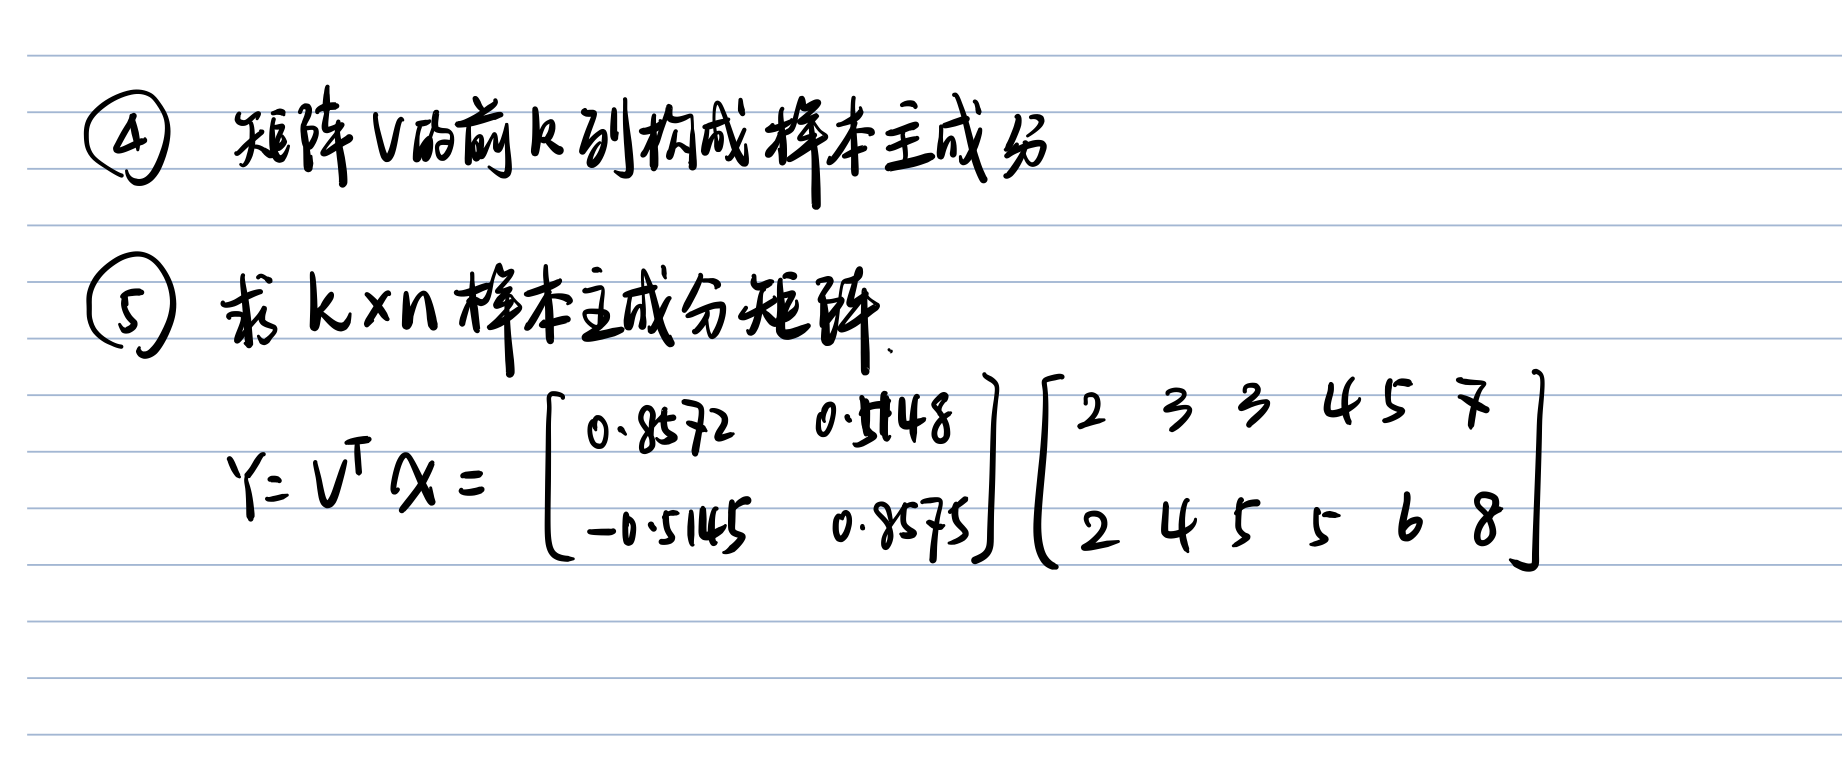 ④ 矩阵V的前k列构成样本主成分
⑤ 求k×n样本主成分矩阵.
Y=V^T X = [0.8572 0.5148 [2 3 3 4 5 7
-0.5145 0.8575] 2 4 5 5 6 8]